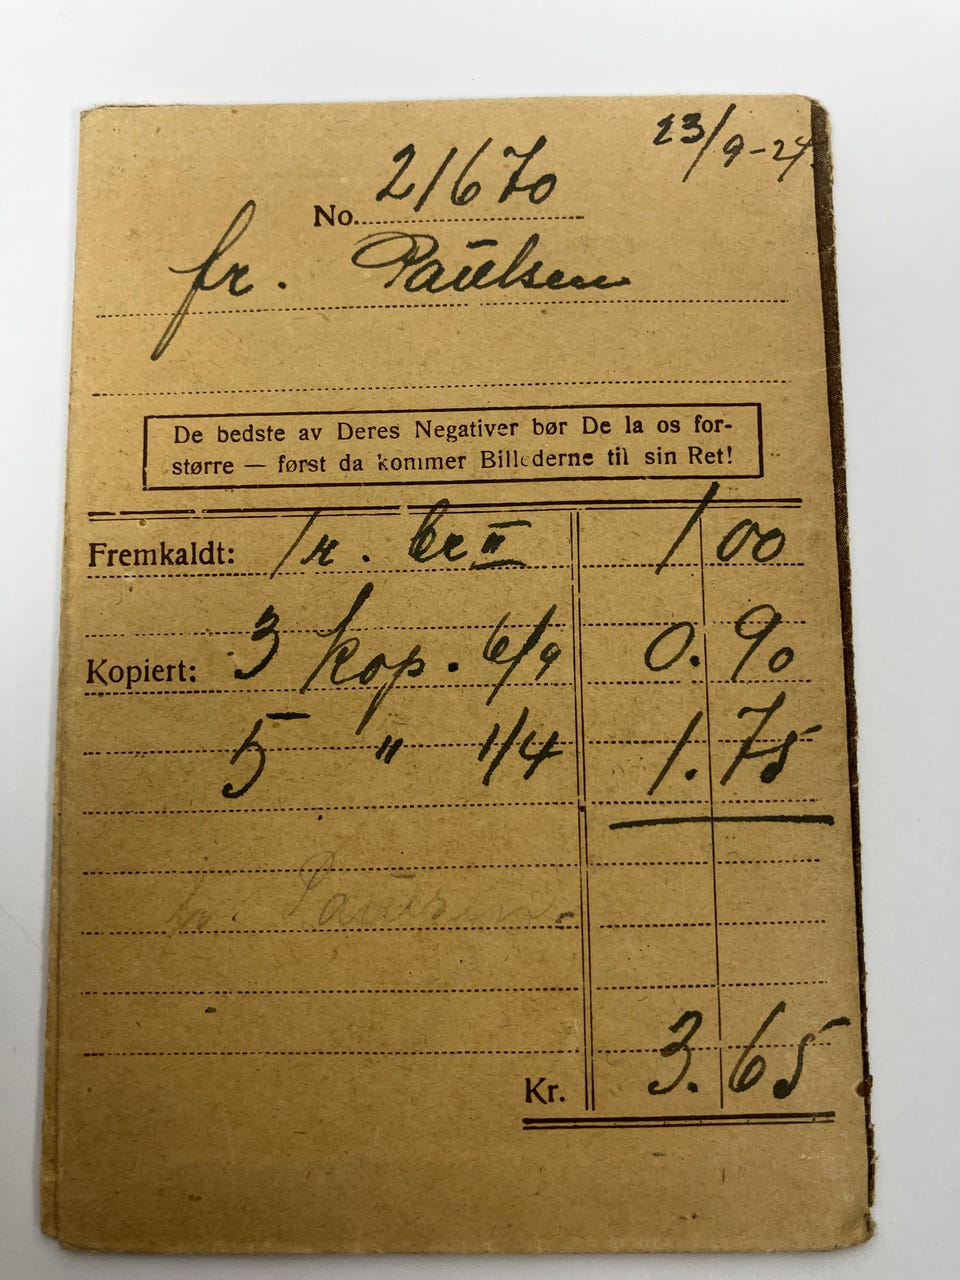 23/9-24.
No. 21670
fr. Paulsen
De bedste av Deres Negativer bør De la os for-
større — først da kommer Billederne til sin Ret!
Fremkaldt: 1 r. br II 1 00
Kopiert: 3 kop. 6/9 0.90
5 " 1/4 1.75
fr. Paulsen.
Kr. 3.65